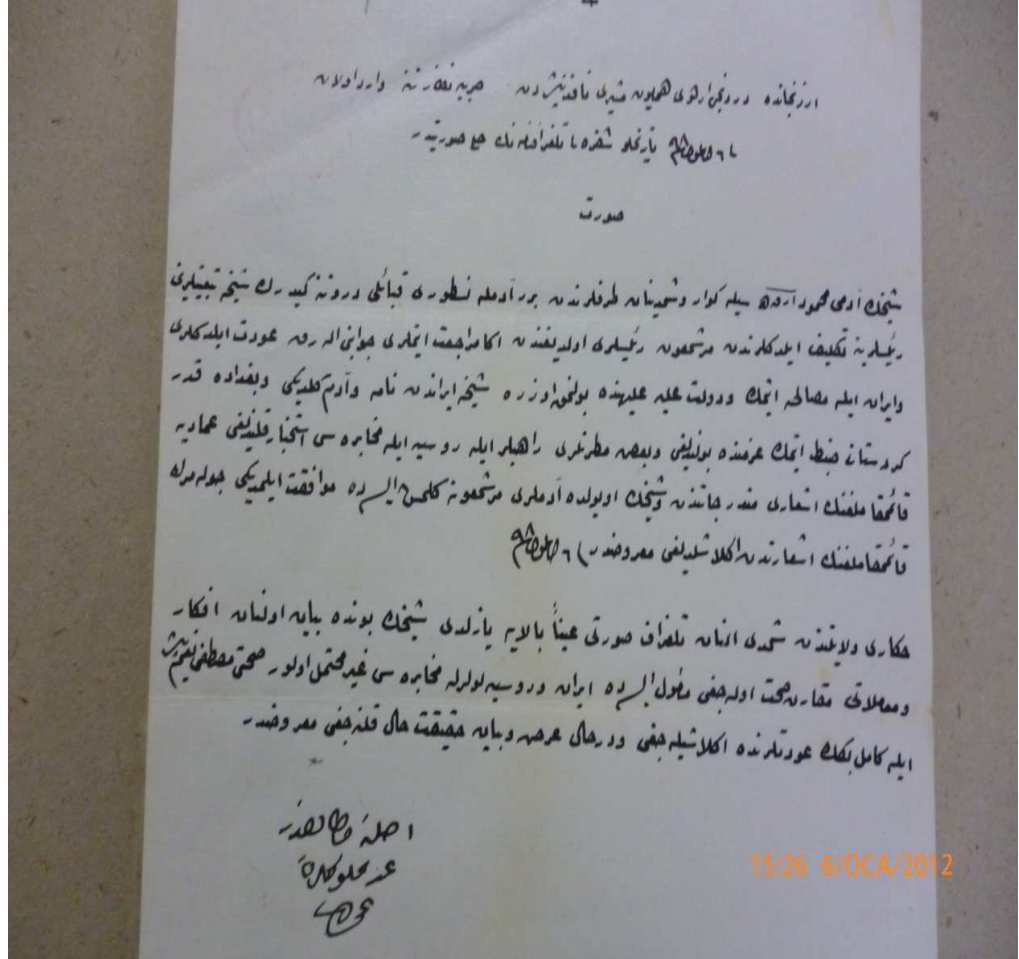 ارزنجانده دردنجی اردوی همایون مشیری نافذ پاشادن حربیه نظارتنه وارد اولان
تاریخلو شفره تلغرافنامه نك حلی صورتیدر
صورت
شیخك آدمی محمود سیله كوار و شمدینان طرفلرندن برر آدمله نسطوری قبائلی درونه كیدرك شیخه تبعیتلرینی
رئیسلرینه تكلیف ایلدكلرنده مرشمعون رئیسلری اولدیغندن اكا مراجعت ایتملری جوابنی اله رق عودت ایلدكلری
وایران ایله مصالحه ایتمك ودولت علیه علیهنده بولنمق اوزره شیخه ایراندن نامه وآدم كلدیكی وبغداده قدر
كردستانی ضبط ایتمك عزمنده بولندیغی وبعض راهبلر ایله روسیه ایله مخابره سی استخبار قلندیغی عمادیه
قائمقاملغنك اشعاری مندرجاتندن وشیخك اویولده آدملری مرشمعونه كلمش ایسه ده موافقت ایلمدیكی جوله مرك
قائمقاملغنك اشعارندن اكلاشلدیغی معروضدر
حكاری ولایتندن شمدی النان تلغراف صورتی عیناً بالایه یازلدی شیخك بونده بیان اولنان افكار
ومعاملاتی مقارن صحت اوله جغی مأمول ایسه ده ایران وروسیه لولرله مخابره سی غیر محتمل اولور صحتی مصطفی نعیم پاشا
ایله كامل بكك عودتلرنده اكلاشیله جغی ودرحال عرض وبیان حقیقت حال قلنه جغی معروضدر
اصلنه مطابقدر
15:26 6/OCA/2012